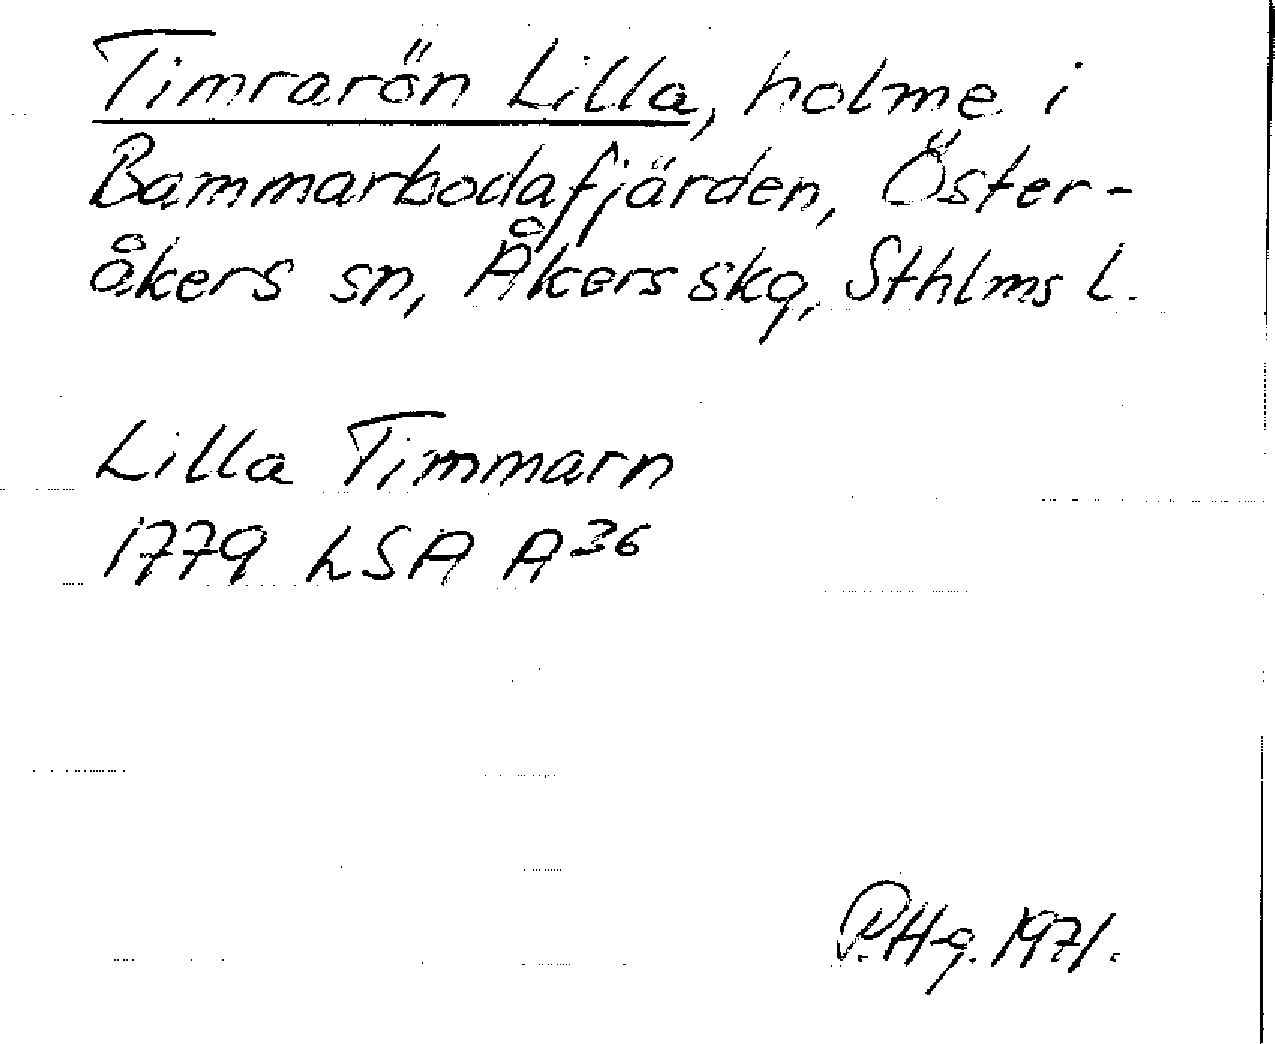 Timrarön Lilla, holme i
Bammarbodafjärden, Öster-
åkers sn, Åkers skg, Sthlms l.
Lilla Timmarn
1779 LSA A36
P.Hg. 1971.